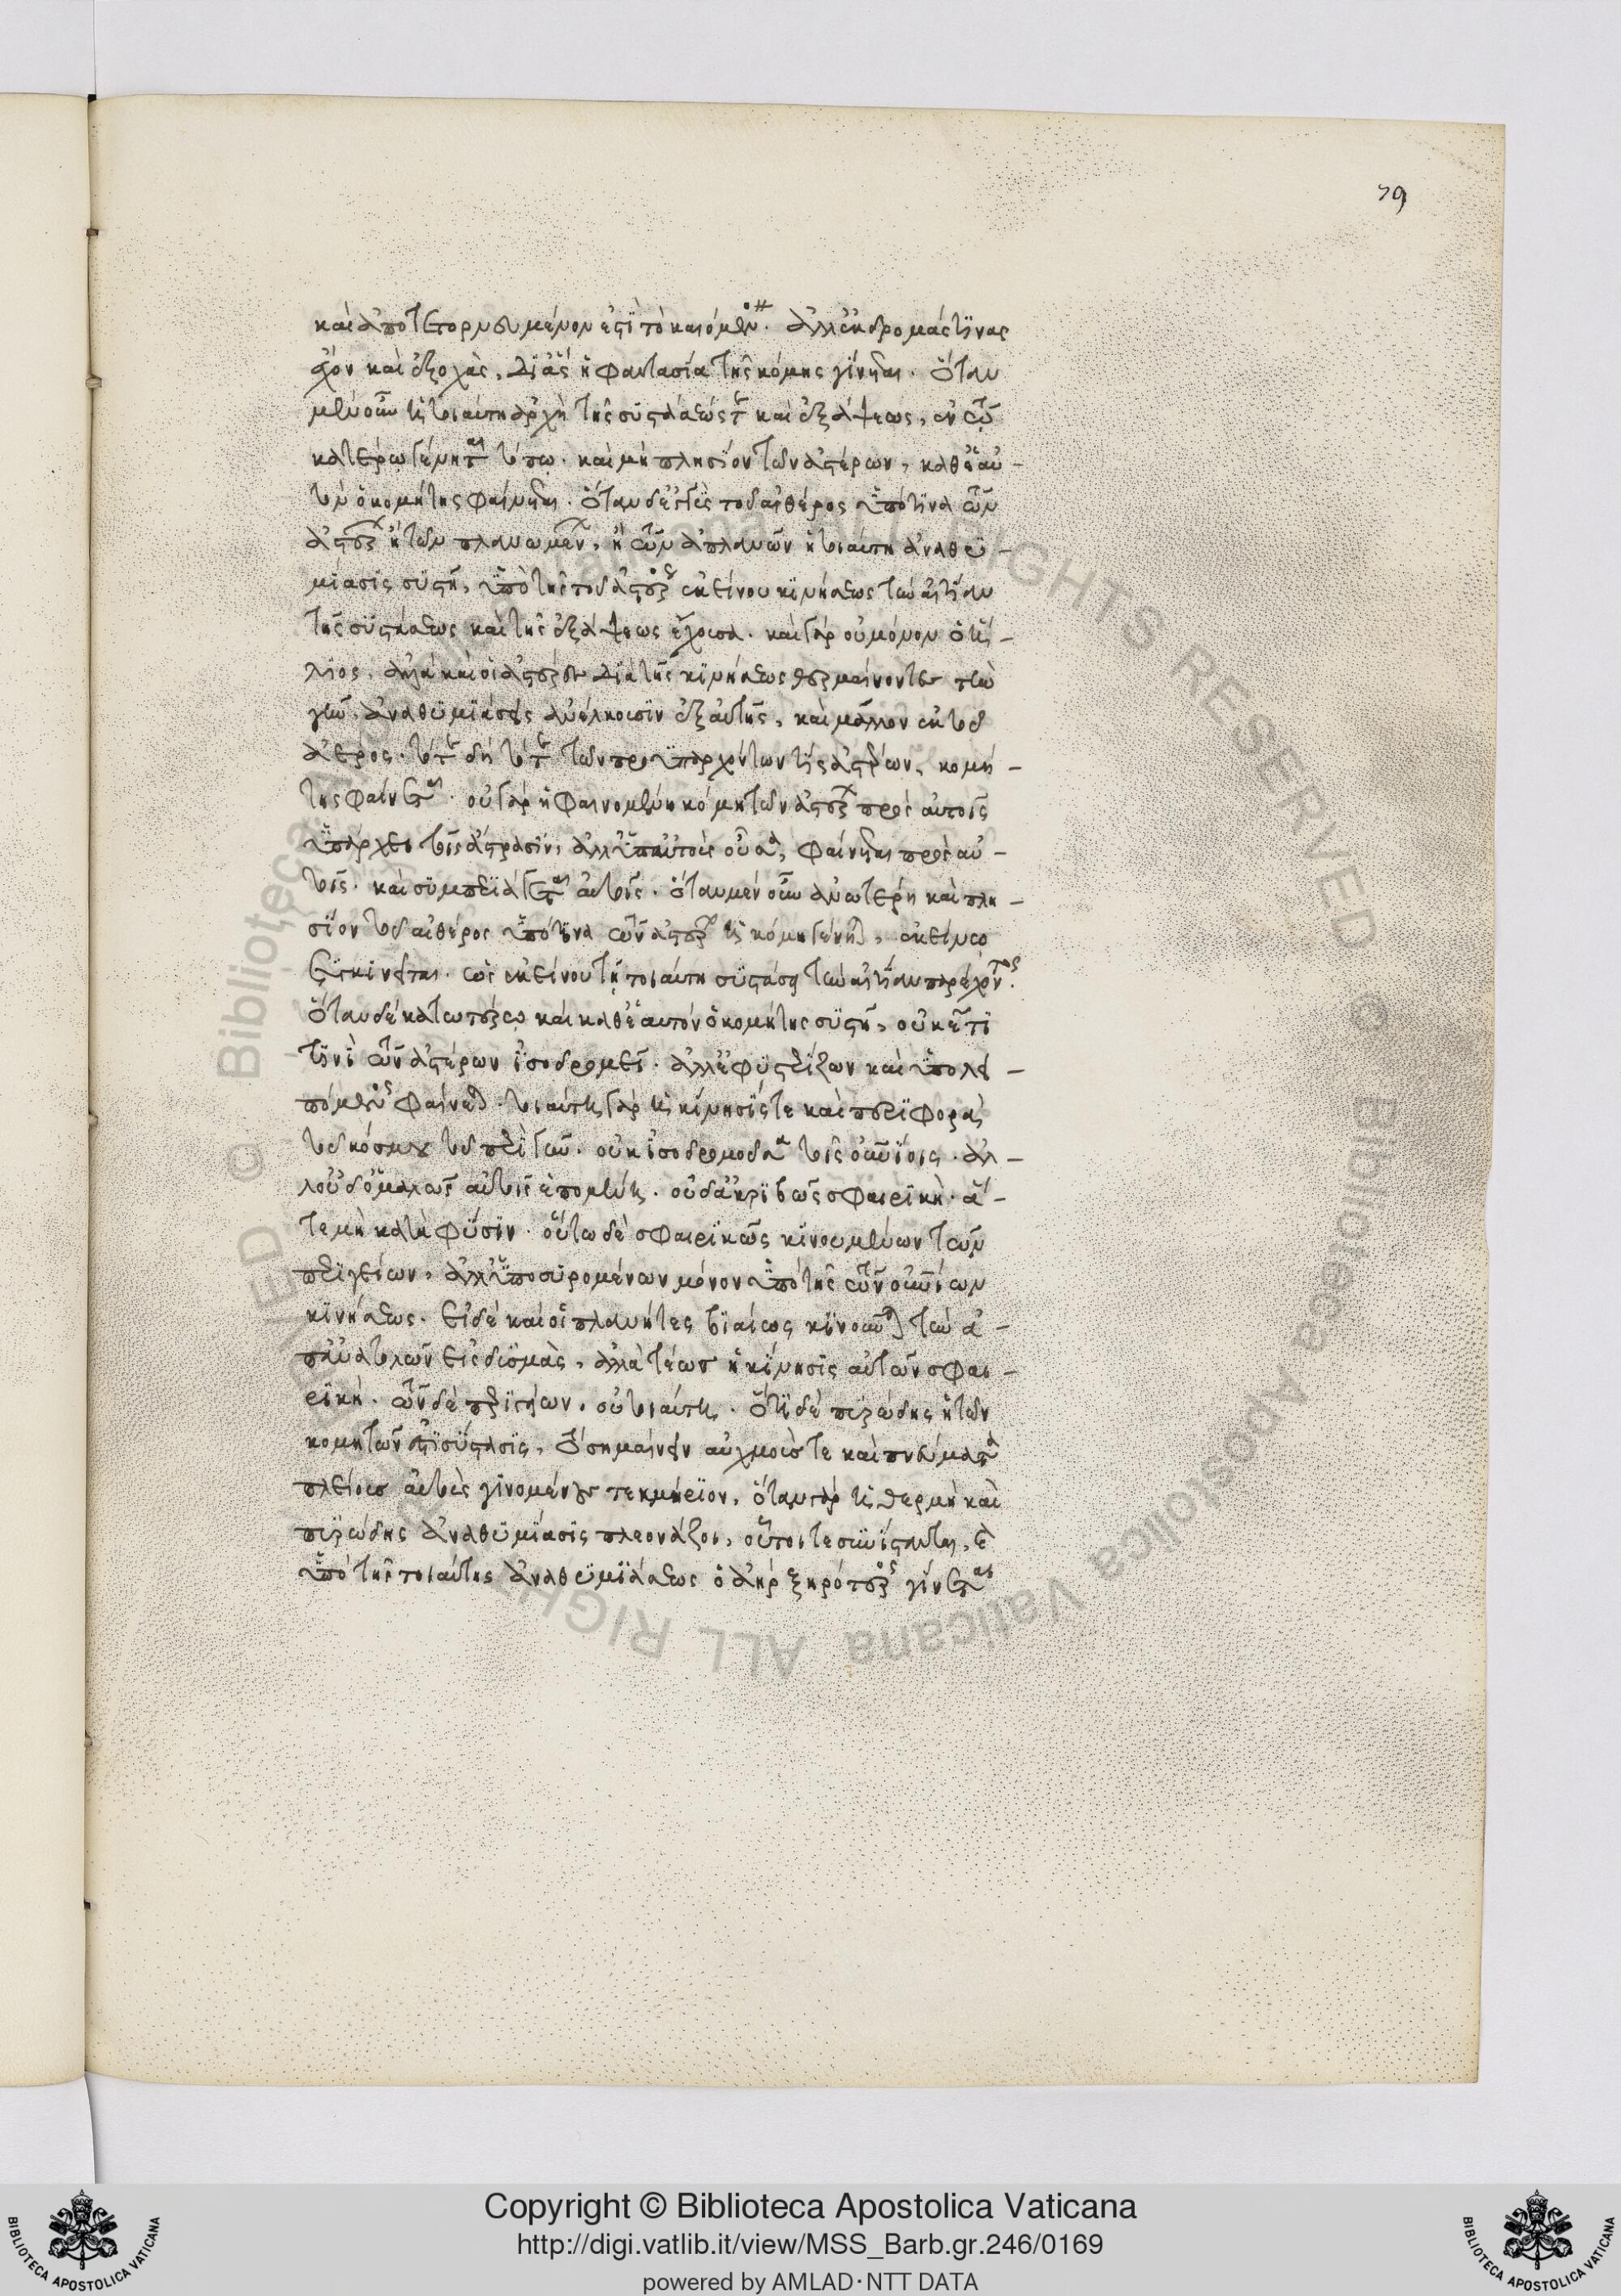 79
καὶ ἀποτετορνευμένον ἐστὶ τὸ καιόμενον. ἀλλ' ἐκδρομάς τινας
ἔχον καὶ ἐξοχὰς, δι' ἃς ἡ φαντασία τῆς κόμης γίνεται. Ὅταν
μὲν οὖν ἡ τοιαύτη ἀρχὴ τῆς συστάσεως καὶ ἐξάψεως, ἐν τῷ
κατωτέρω γένηται τόπῳ. καὶ μὴ πλησίον τῶν ἀστέρων, καθ' ἑαυ-
τὸν ὁ κομήτης φαίνεται. Ὅταν δὲ ἐγγὺς τοῦ αἰθέρος ὑπό τινα τῶν
ἀστέρων ἢ τῶν πλανωμένων, ἢ τῶν ἀπλανῶν ἡ τοιαύτη ἀναθυ-
μίασις συστῇ, ὑπὸ τῆς τοῦ ἀστέρος ἐκείνου κινήσεως τὴν αἰτίαν
τῆς συστάσεως καὶ τῆς ἐξάψεως ἔχουσα. καὶ γὰρ οὐ μόνον ὁ ἥ-
λιος. ἀλλὰ καὶ οἱ ἀστέρες διὰ τῆς κινήσεως θερμαίνοντες τὴν
γῆν. ἀναθυμιάσεις ἀνέλκουσιν ἐξ αὐτῆς, καὶ μᾶλλον ἐκ τοῦ
ἀέρος. τότε δὴ τότε τῶν προϋπαρχόντων τις ἀστέρων, κομή-
της φαίνεται. οὐ γὰρ ἡ φαινομένη κόμη τῶν ἀστέρων πρὸς αὐτοῖς
ὑπάρχει τοῖς ἀστράσιν, ἀλλ' ὑπ' αὐτοὺς οὖσα, φαίνεται πρὸς αὐ-
τοῖς. καὶ συμπεριάγεται αὐτοῖς. Ὅταν μὲν οὖν ἀνωτέρω καὶ πλη-
σίον τοῦ αἰθέρος ὑπό τινα τῶν ἀστέρων ἡ κόμη γένηται, ἐκείνῳ
συγκινεῖται. ὡς ἐκείνου τῇ τοιαύτῃ συστάσει τὴν αἰτίαν παρέχοντος.
Ὅταν δὲ κατωτέρω καὶ καθ' ἑαυτὸν ὁ κομήτης συστῇ, οὐκέτι
τινὶ τῶν ἀστέρων ἰσοδρομεῖ. ἀλλ' ἐφυστερίζων καὶ ὑπολει-
πόμενος φαίνεται. τοιαύτη γὰρ ἡ κίνησίς τε καὶ περιφορὰ
τοῦ κόσμου τοῦ περὶ γῆν. οὐκ ἰσοδρομοῦσα τοῖς οὐρανίοις. ἀλ-
λ' οὐδ' ὁμαλῶς αὐτοῖς ἑπομένη. οὐδ' ἀκριβῶς σφαιρική. ἅ-
τε μὴ κατὰ φύσιν. οὕτω δὲ σφαιρικῶς κινουμένων τῶν
περιγείων, ἀλλ' ὑποσυρομένων μόνον ὑπὸ τῆς τῶν οὐρανίων
κινήσεως. Εἰ δὲ καὶ οἱ πλανῆτες βιαίως κινοῦνται τὴν ἀ-
π' ἀνατολῶν εἰς δυσμὰς, ἀλλὰ τέως ἡ κίνησις αὐτῶν σφαι-
ρική. τῶν δὲ περιγείων, οὐ τοιαύτη. Ὅτι δὲ πυρώδης ἡ τῶν
κομητῶν ἐστὶ σύστασις, τὸ σημαίνειν αὐχμούς τε καὶ πνεύματα
πλείους αὐτοὺς γινομένους τεκμήριον, ὅταν γὰρ ἡ θερμὴ καὶ
πυρώδης ἀναθυμίασις πλεονάζοι, οὗτοί τε συνίστανται, καὶ
ὑπὸ τῆς τοιαύτης ἀναθυμιάσεως ὁ ἀὴρ ξηρότερος γίνεται
© Biblioteca Apostolica Vaticana ALL RIGHTS RESERVED © Biblioteca Apostolica Vaticana ALL RIGHTS RESERVED
Copyright © Biblioteca Apostolica Vaticana
http://digi.vatlib.it/view/MSS_Barb.gr.246/0169
powered by AMLAD·NTT DATA
BIBLIOTECA APOSTOLICA VATICANA
BIBLIOTECA APOSTOLICA VATICANA